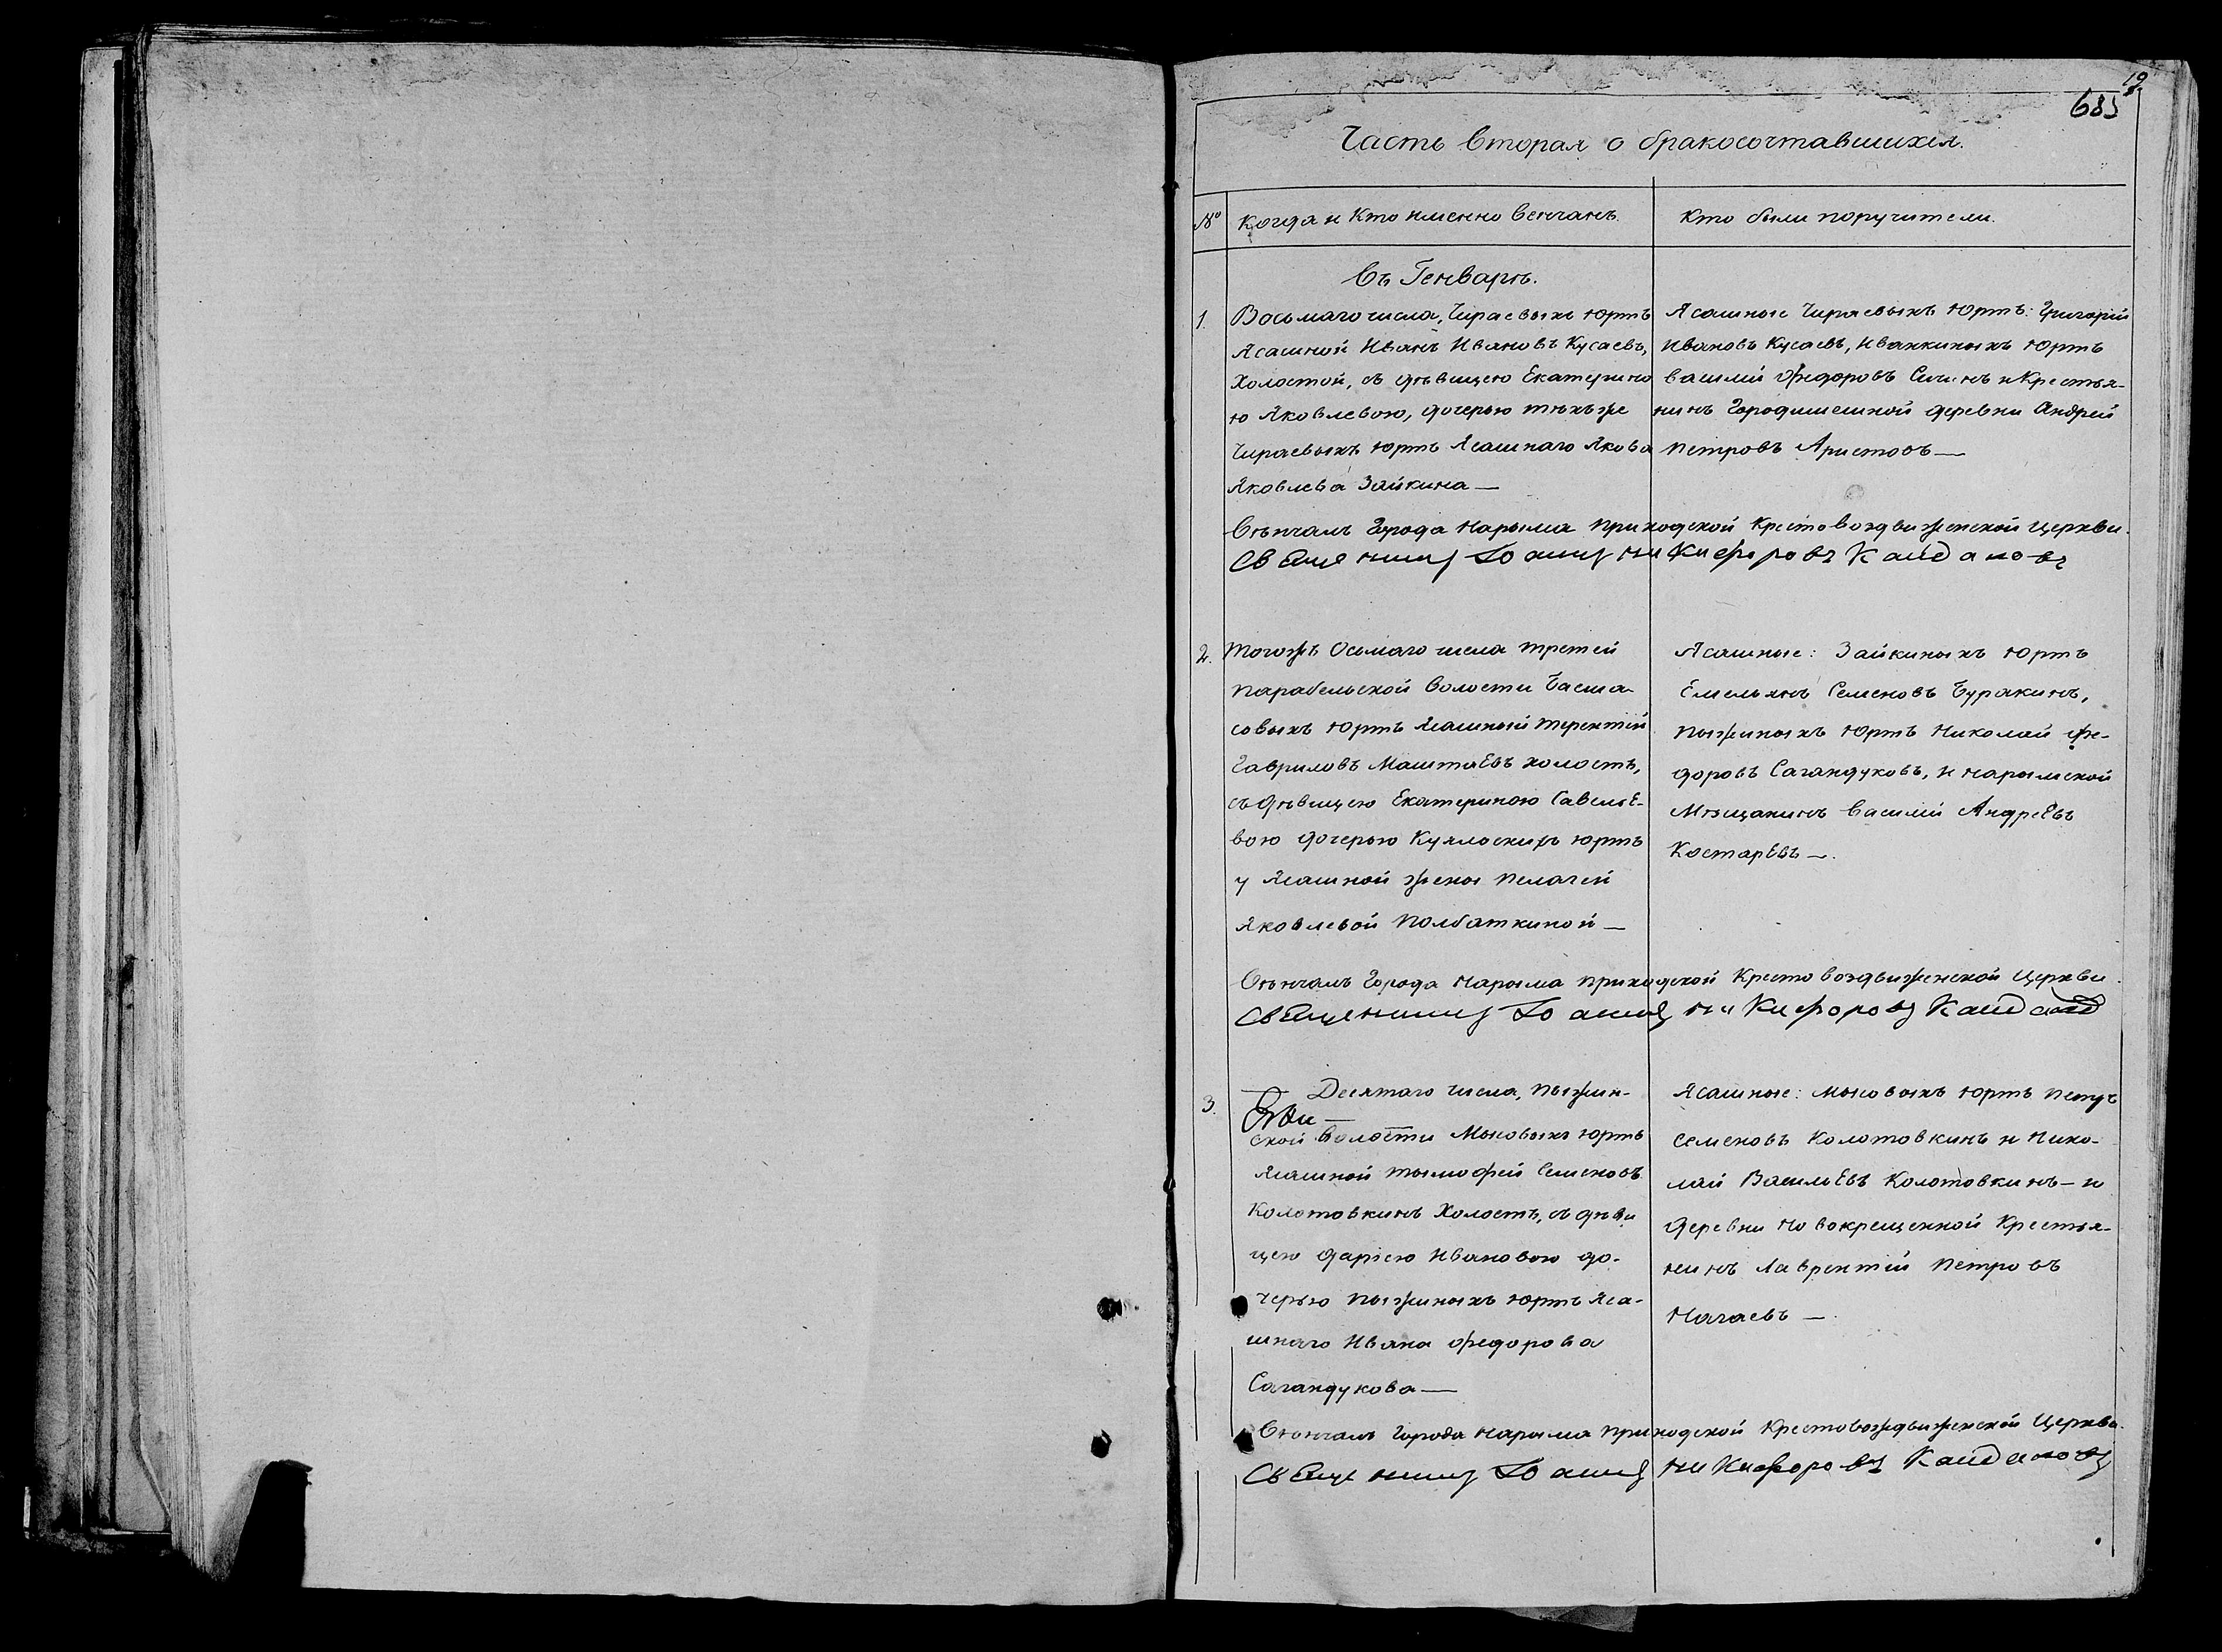 19
685
Часть вторая о бракосочтавшихся.
№ Когда и Кто именно венчанъ. Кто были поручители.
Въ Генварѣ.
1. Восьмаго числа, Чираевыхъ Юртъ
Ясашной Иванъ Ивановъ Кусаевъ,
Холостой, съ дѣвицею Екатерино
ю Яковлевою, дочерью тѣхъ же
Чираевыхъ Юртъ Ясашнаго Якова
Яковлева Зайкина —
Ясашные Чираевыхъ Юртъ: Григорій
Ивановъ Кусаевъ, Иванкиныхъ Юртъ
Василій Ѳедоровъ и Крестья-
нинъ Городищенской деревни Андрей
Петровъ Аристовъ —
Вѣнчалъ Города Нарыма приходской Крестовоздвиженской Церкви.
Священникъ Іоаннъ Никифоровъ Кайдаловъ
2. Тогожъ Осьмаго числа третей
Парабельской Волости Басма-
совыхъ Юртъ Ясашный Терентій
Гавриловъ Маштаевъ холостъ,
съ дѣвицею Екатериною Савелье-
вою дочерью Куялоскихъ Юртъ
у Ясашной жены Пелагеи
Яковлевой Полбаткиной —
Ясашные: Зайкиныхъ Юртъ
Емельянъ Семеновъ Буракинъ,
Пыжиныхъ Юртъ Николай Ѳе-
доровъ Сагандуковъ, и Нарымской
Мѣщанинъ Василій Андреевъ
Костаревъ —.
Вѣнчалъ Города Нарыма приходской Крестовоздвиженской Церкви.
Священникъ Іоаннъ Никифоровъ Кайдаловъ
3. Десятаго числа, Пыжин-
ской Волости Мыковыхъ Юртъ
Ясашной Тымофей Семеновъ
Колотовкинъ Холостъ, съ дѣви
цею Даріею Ивановою до-
черью Пыжиныхъ Юртъ Яса-
шнаго Ивана Федорова
Сагандукова —
Ясашные: Мыковыхъ Юртъ Петръ
Семеновъ Колотовкинъ и Нико-
лай Васильевъ Колотовкинъ — и
Деревни Новокрещенной Крестья-
нинъ Лаврентій Петровъ
Нагаевъ —.
Вѣнчалъ Города Нарыма приходской Крестовоздвиженской Церкви.
Священникъ Іоаннъ Никифоровъ Кайдаловъ